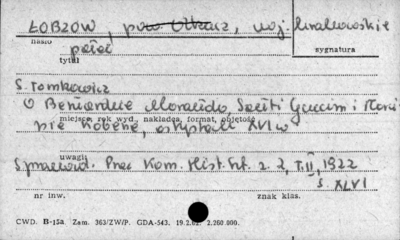 ŁOBZÓW, pow. Olkusz, woj. krakowskie
hasło
pałac
sygnatura
tytuł
S. Tomkowicz
O Bernardzie Morando, Santi Guccim i
miejsce, rok wyd., nakładca, format, objętość
artystach XVI w
uwagi
Sprawozd. Prac Kom. Hist. Szt. z. 2, T. II, 1922
s. XLVI
nr inw.
znak klas.
CWD. B-15a. Zam. 363/ZW/P. GDA-543. 19.2.62. 2.260.000.